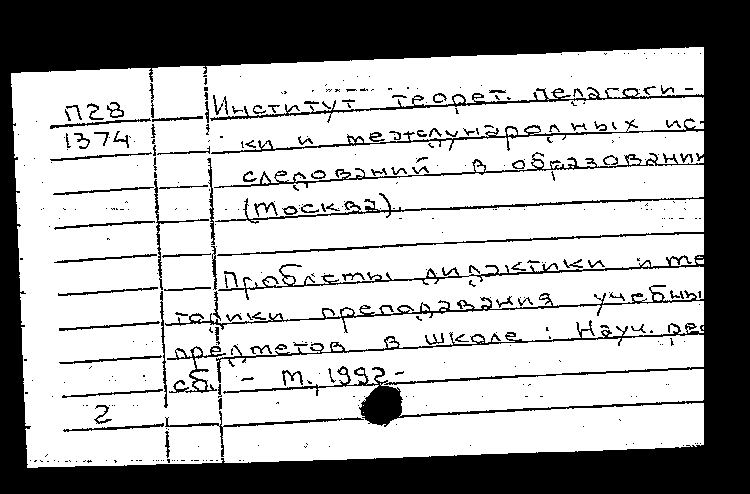 П28
1374
Институт теорет. педагоги-
ки и международных ис-
следований в образовании
(Москва).
Проблемы дидактики и ме
тодики преподавания учебны
предметов в школе : Науч. ре
сб. - М., 1992-
2